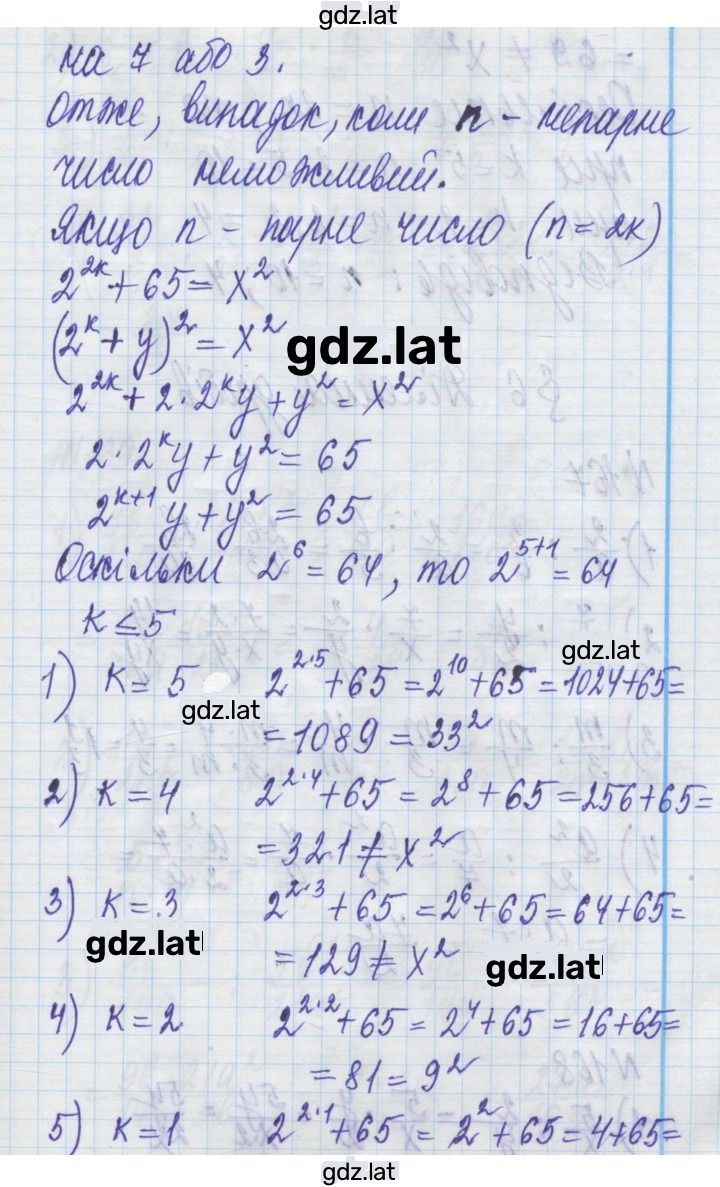 gdz.lat
на 7 або 3.
Отже, випадок, коли n - непарне
число неможливий.
Якщо n - парне число (n = 2k)
2^{2k} + 65 = x^2
(2^k + y)^2 = x^2
gdz.lat
2^{2k} + 2 · 2^k y + y^2 = x^2
2 · 2^k y + y^2 = 65
2^{k+1} y + y^2 = 65
Оскільки 2^6 = 64, то 2^{5+1} = 64
k ≤ 5
gdz.lat
1) k = 5 2^{2·5} + 65 = 2^{10} + 65 = 1024 + 65 =
gdz.lat
= 1089 = 33^2
2) k = 4 2^{2·4} + 65 = 2^8 + 65 = 256 + 65 =
= 321 ≠ x^2
3) k = 3 2^{2·3} + 65 = 2^6 + 65 = 64 + 65 =
gdz.lat
= 129 ≠ x^2
gdz.lat
4) k = 2 2^{2·2} + 65 = 2^4 + 65 = 16 + 65 =
= 81 = 9^2
5) k = 1 2^{2·1} + 65 = 2^2 + 65 = 4 + 65 =
gdz.lat